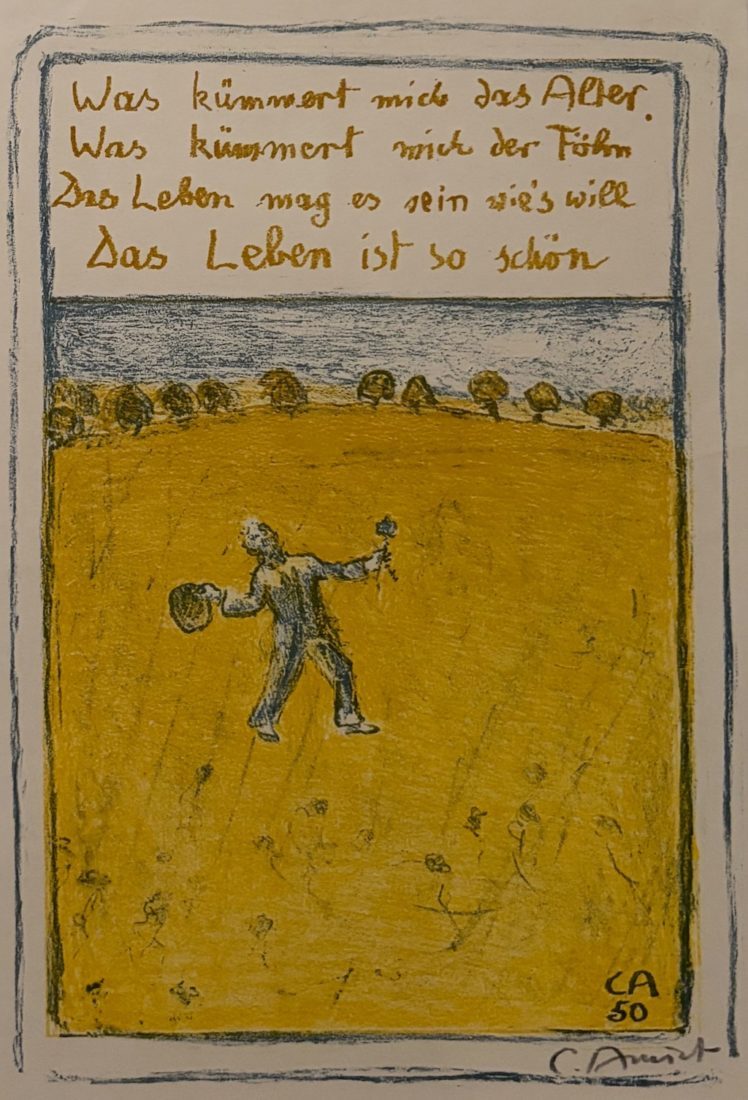 Was kümmert mich das Alter.
Was kümmert mich der Föhn
Das Leben mag es sein wie's will
Das Leben ist so schön
CA
50
C. Amiet